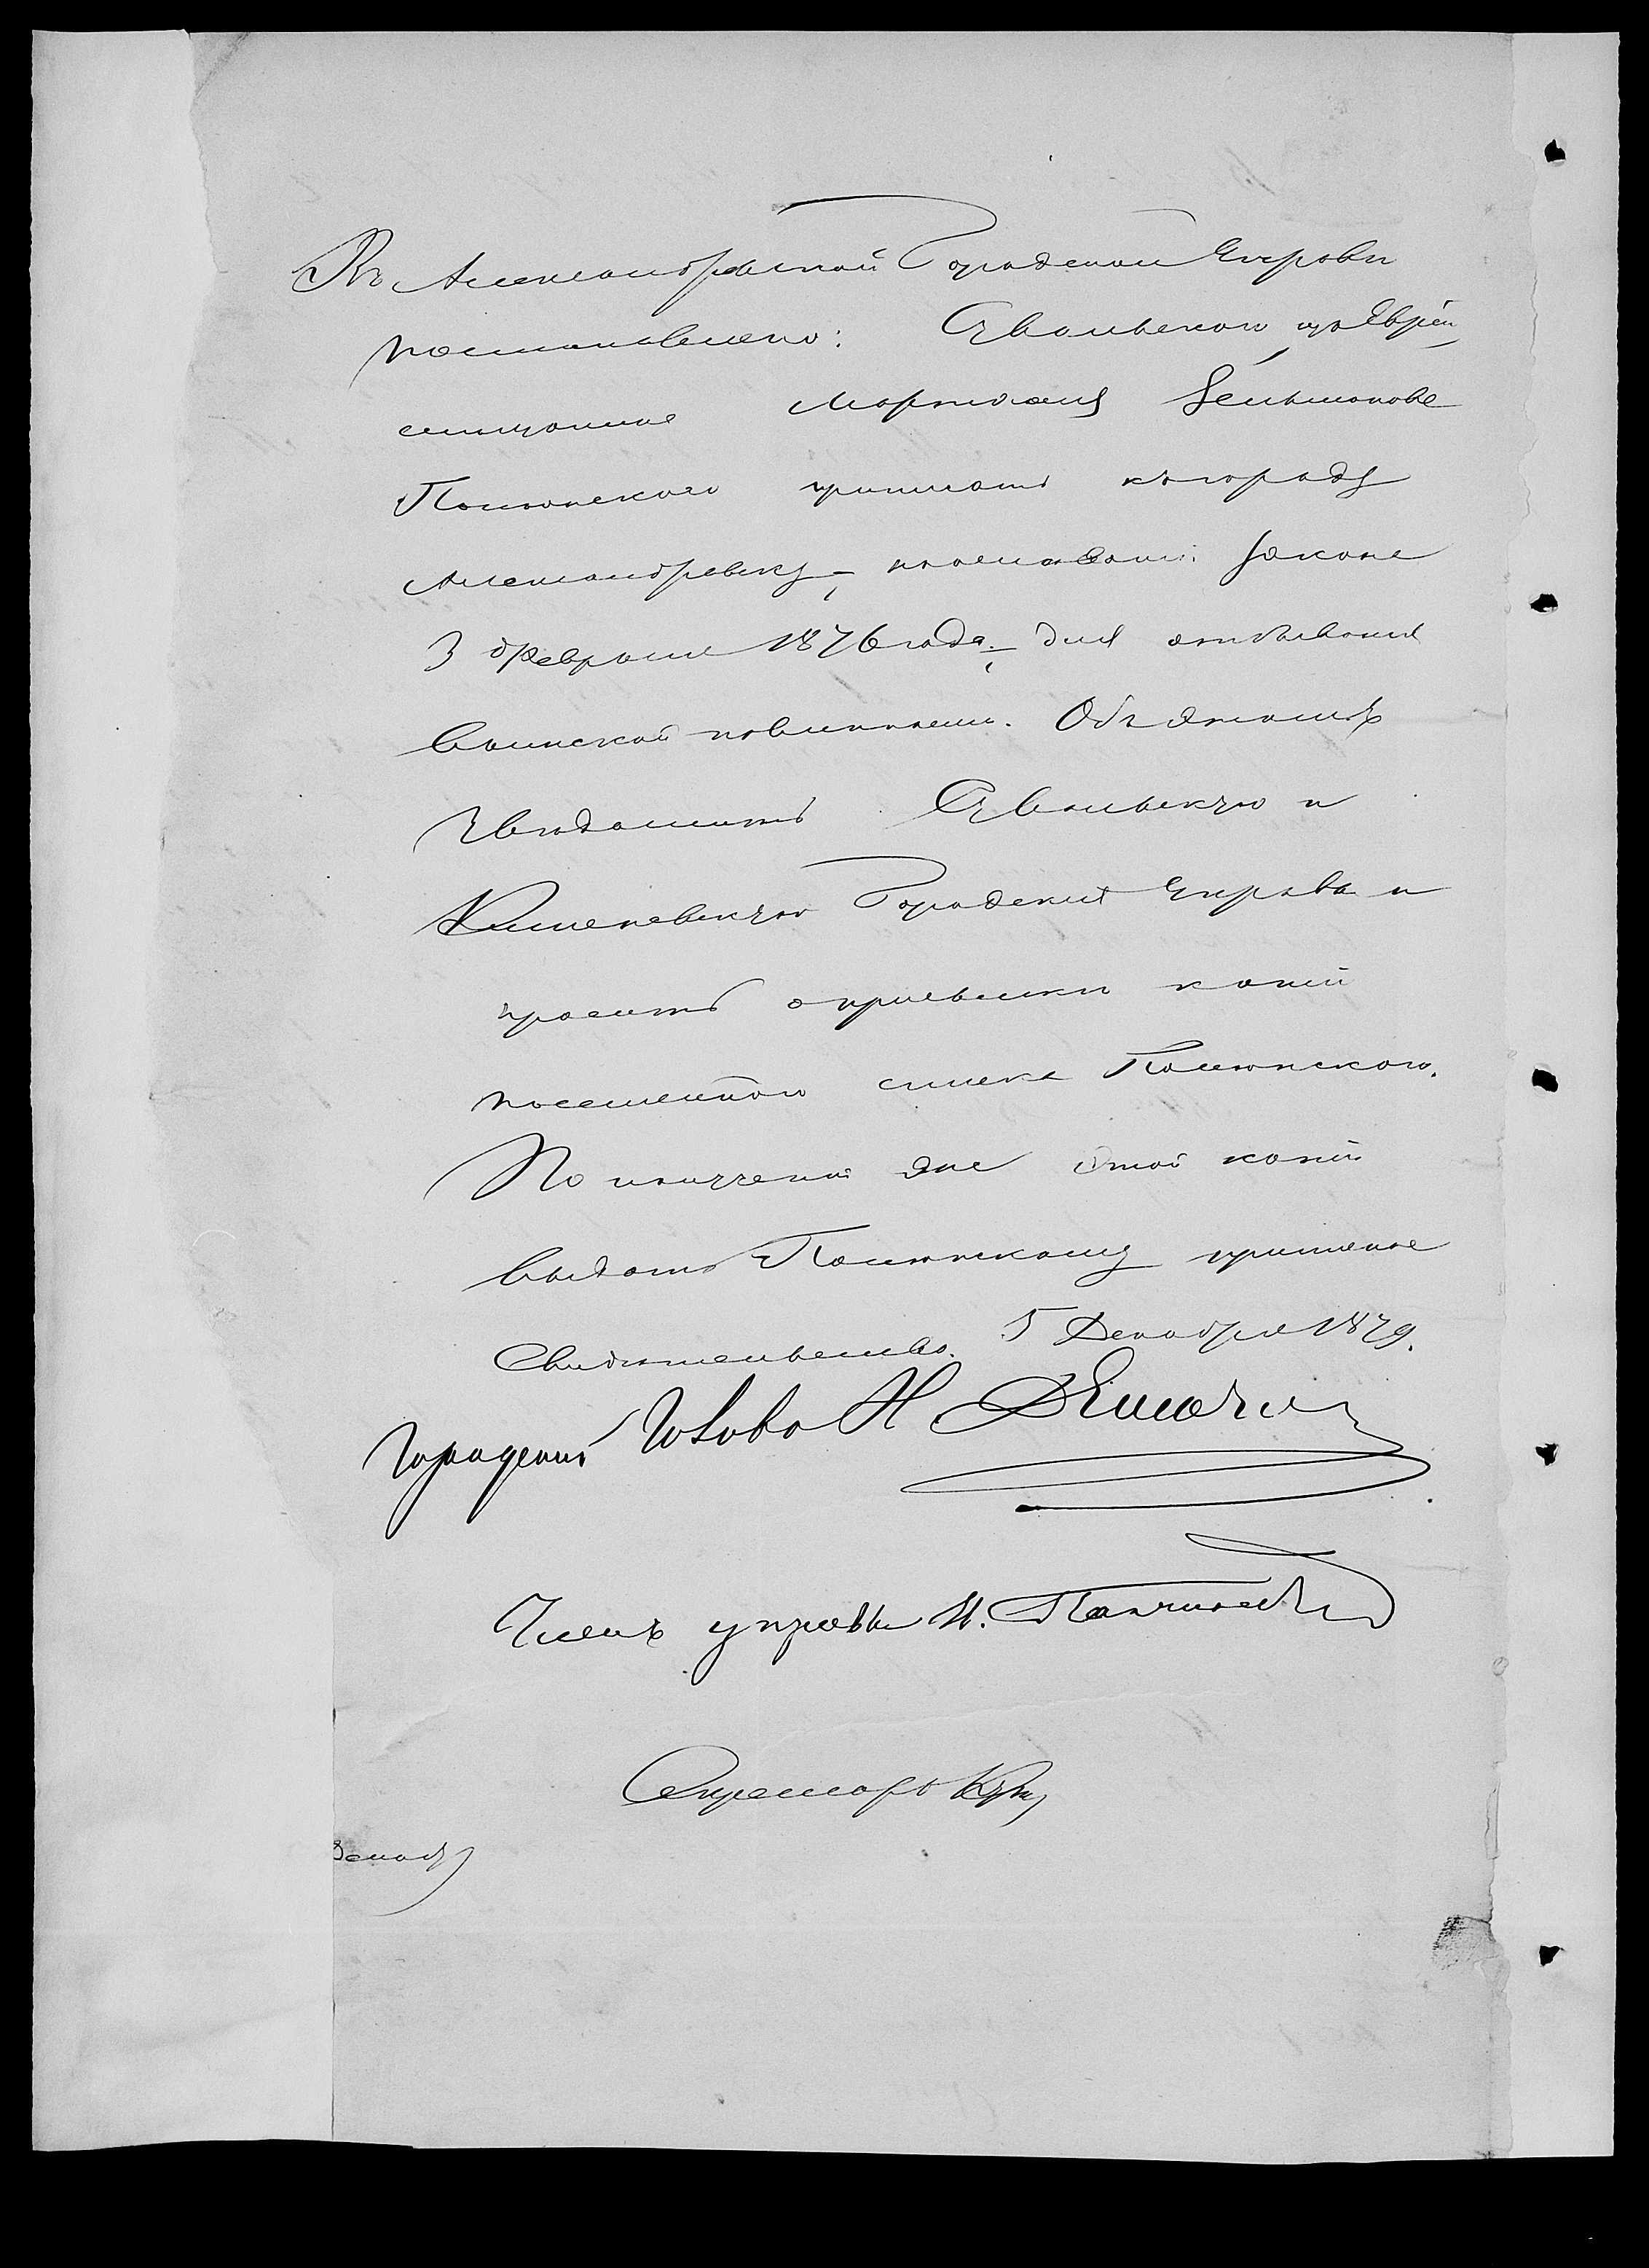 Въ Александровской Городской Управѣ
постановлено: Сувальскаго изъ Евреи
мещанина Мортхеля Зельмонове
Полонскаго приписать къ городу
Александровску, на основаніи Закона
3 Февраля 1876 года, для отбыванія
воинской повинности. Объ этомъ
увѣдомить Сувальскую и
Кишеневскую Городскія Управы и
просить о присылки копіи
посемейнаго списка Полонскаго.
По полученіи же этой копіи
выдать Полонскому приписное
Свидѣтельство. 5 Декабря 1879.
Городской Голова Н
Членъ управы И.
Секретарь